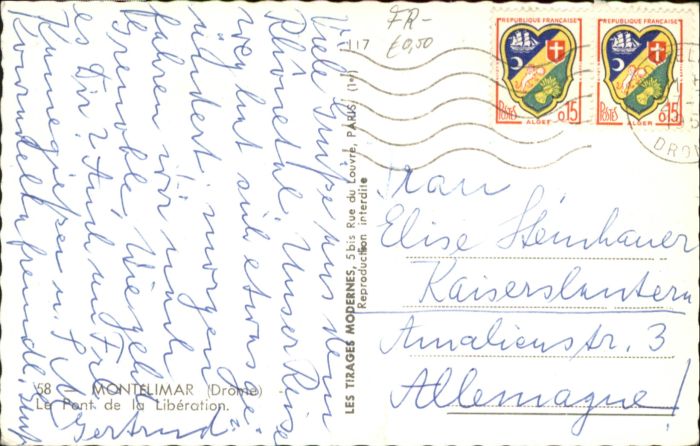 Viele Grüße aus dem
Rhônetal. Unser Reise
weg hat sich etwas ge
ändert. morgen
fahren wir nach
Grenoble. Wie geht
es Dir? Auch u. Frl.
Kunnegießer u.
freundl.
Gertrud
58 MONTELIMAR (Drôme)
Le Pont de la Libération.
LES TIRAGES MODERNES, 5 bis Rue du Louvre, PARIS (1er)
Reproduction interdite
FR-
€0,50
117
REPUBLIQUE FRANÇAISE
POSTES
0,15
ALGER
REPUBLIQUE FRANÇAISE
POSTES
0,15
ALGER
Frau
Elise Steinhauer
Kaiserslautern
Amalienstr. 3
Allemagne!